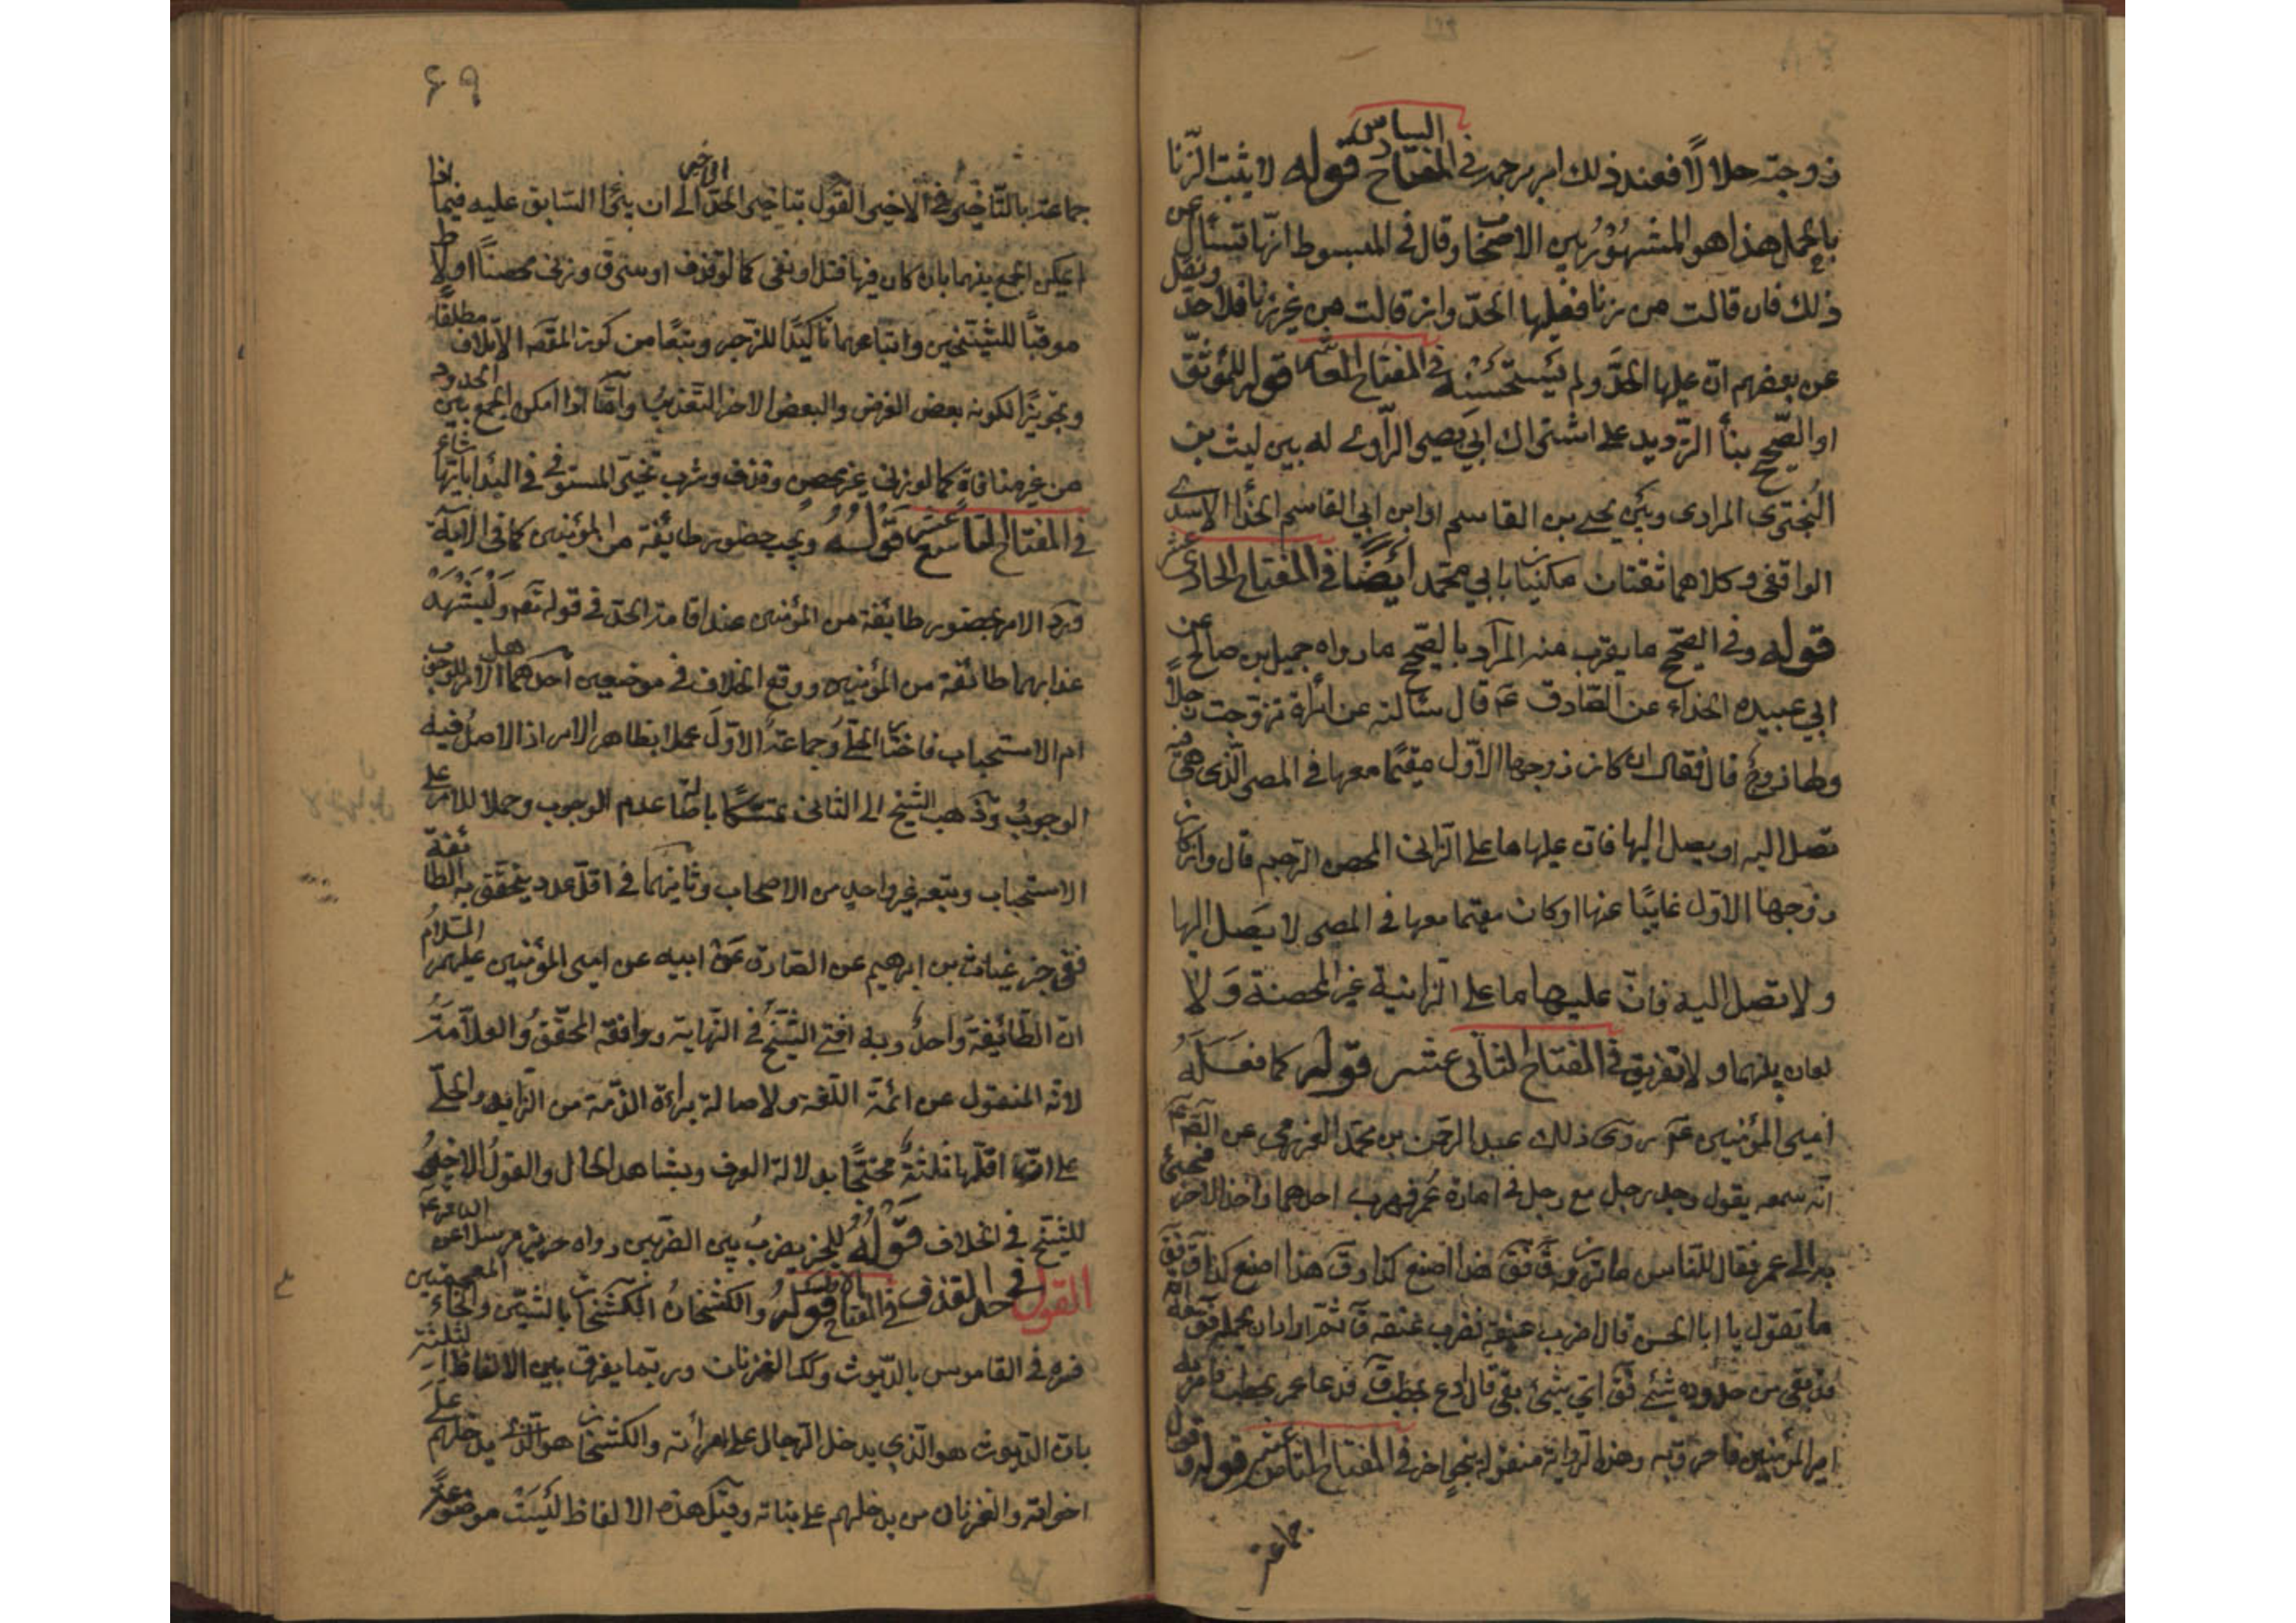 زوجته حلالا فعند ذلك امر برجمه في المفتاح السادس قوله لا يثبت الزنا
بالحمل هذا هو المشهور بين الاصحاب وقال في المبسوط انها تسئال عن
ذلك فان قالت من زنا فعليها الحد وان قالت من غير زنا فلا حد ونقل
عن بعضهم ان عليها الحد ولم يستحسنه في المفتاح قوله للموثق
او الصحيح بنأ الترديد على اشتراك ابي بصير الراوي له بين ليث بن
البختري المرادى وبين يحيى بن القاسم او ابن ابي القاسم الحذا الاسدي
الواقفى وكلاهما ثقتان مكنيان بابي محمد ايضا في المفتاح الحادي عشر
قوله وفي الصحيح ما يقرب منه المراد بالصحيح ما رواه جميل بن صالح عن
ابي عبيده الحذاء عن الصادق ع قال سئالته عن امراة تزوجت رجلا
ولها زوج قال فقال ان كان زوجها الاول مقيما معها في المصر الذي هي فيه
تصل اليه او يصل اليها فان عليها ما على الزانى المحصن الرجم قال وان كان
زوجها الاول غايبا عنها او كان مقيما معها في المصر لا يصل اليها
ولا تصل اليه فان عليها ما على الزانية غير المحصنة ولا
لعان بينهما ولا تفريق في المفتاح الثاني عشر قوله كما فعله
امير المؤمنين ع روى ذلك عبد الرحمن بن محمد العزرمي عن الصم ع
انه سمعه يقول وجد رجل مع رجل في امارة عمر فهرب احدهما واخذ الاخر فجئ
به الى عمر فقال للناس ما ترون فق هذا اصنع كذا وق هذا اصنع كذا قال فق
ما تقول يا ابا الحسن قال اضرب عنقه فضرب عنقه قال ثم اراد ان يحمله فق انه
قد بقى من حدوده شئ فق اي شئ بقى قال ادع بحطب ق فدعا عمر بحطب فامر به
امير المؤمنين فاحرق به وهذه الرواية منقوله بنحو اخر في المفتاح الثامن عشر قوله وقول
جماعة
٦٩
جماعة بالتأخير في الاخير القول بتاخير الحد الاخير الى ان يبرئ السابق عليه فيما اذا
امكن الجمع بينهما بان كان فيها قتل او نفى كما لو قذف او سرق وزنى محصنا او لا
موقبا للشيخين واتباعهما تاكيدا للزجر وتبعا من كون القصد الاتلاف مطلقا
وتجويزا لكونه بعض الغرض والبعض الاخر التعذيب واما اذا امكن الجمع بين الحدود
من غير منافاة كما لو زنى غير محصن وقذف وشرب تخير المستوفي في البدأ بايها شاء
في المفتاح التاسع عشر قوله ويجب حضور طائفة من المؤمنين كما في الاية
ورد الامر بحضور طائفة من المؤمنين عند اقامة الحد في قوله تعم وليشهد
عذابهما طائفة من المؤمنين ووقع الخلاف في موضعين احدهما هل الامر للوجوب
ام الاستحباب فاختار الحلي وجماعة الاول عملا بظاهر الامر اذ الاصل فيه
الوجوب وذهب الشيخ الى الثانى متمسكا باصالة عدم الوجوب وحملا للامر على
الاستحباب وتبعه غير واحد من الاصحاب وثانيهما في اقل عدد يتحقق به الطائفة
ففي خبر غياث بن ابرهيم عن الصادق عن ابيه عن امير المؤمنين عليهم السلام
ان الطائفة واحد وبه افتى الشيخ في النهاية ووافقه المحقق والعلامة
لانه المنقول عن ائمة اللغة ولاصالة براءة الذمة من الزايد والحلي
على ان اقلها ثلثة محتجا بدلالة العرف وبشاهد الحال والقول الاخير
للشيخ في الخلاف قوله للخبر يضرب بين الضربين رواه حريز مرسلا عن الباقر ع
القول في حد القذف في المفتاح الاول قوله والكشخان الكشخان بالشين والخاء المعجمتين
فسره في القاموس بالديوث وكذا القرنان وربما يفرق بين الالفاظ الثلثة
بان الديوث هو الذي يدخل الرجال على امرأته والكشخان هو الذي يدخلهم على
اخواته والقرنان من يدخلهم على بناته وقيل هذه الالفاظ ليست موضوعة